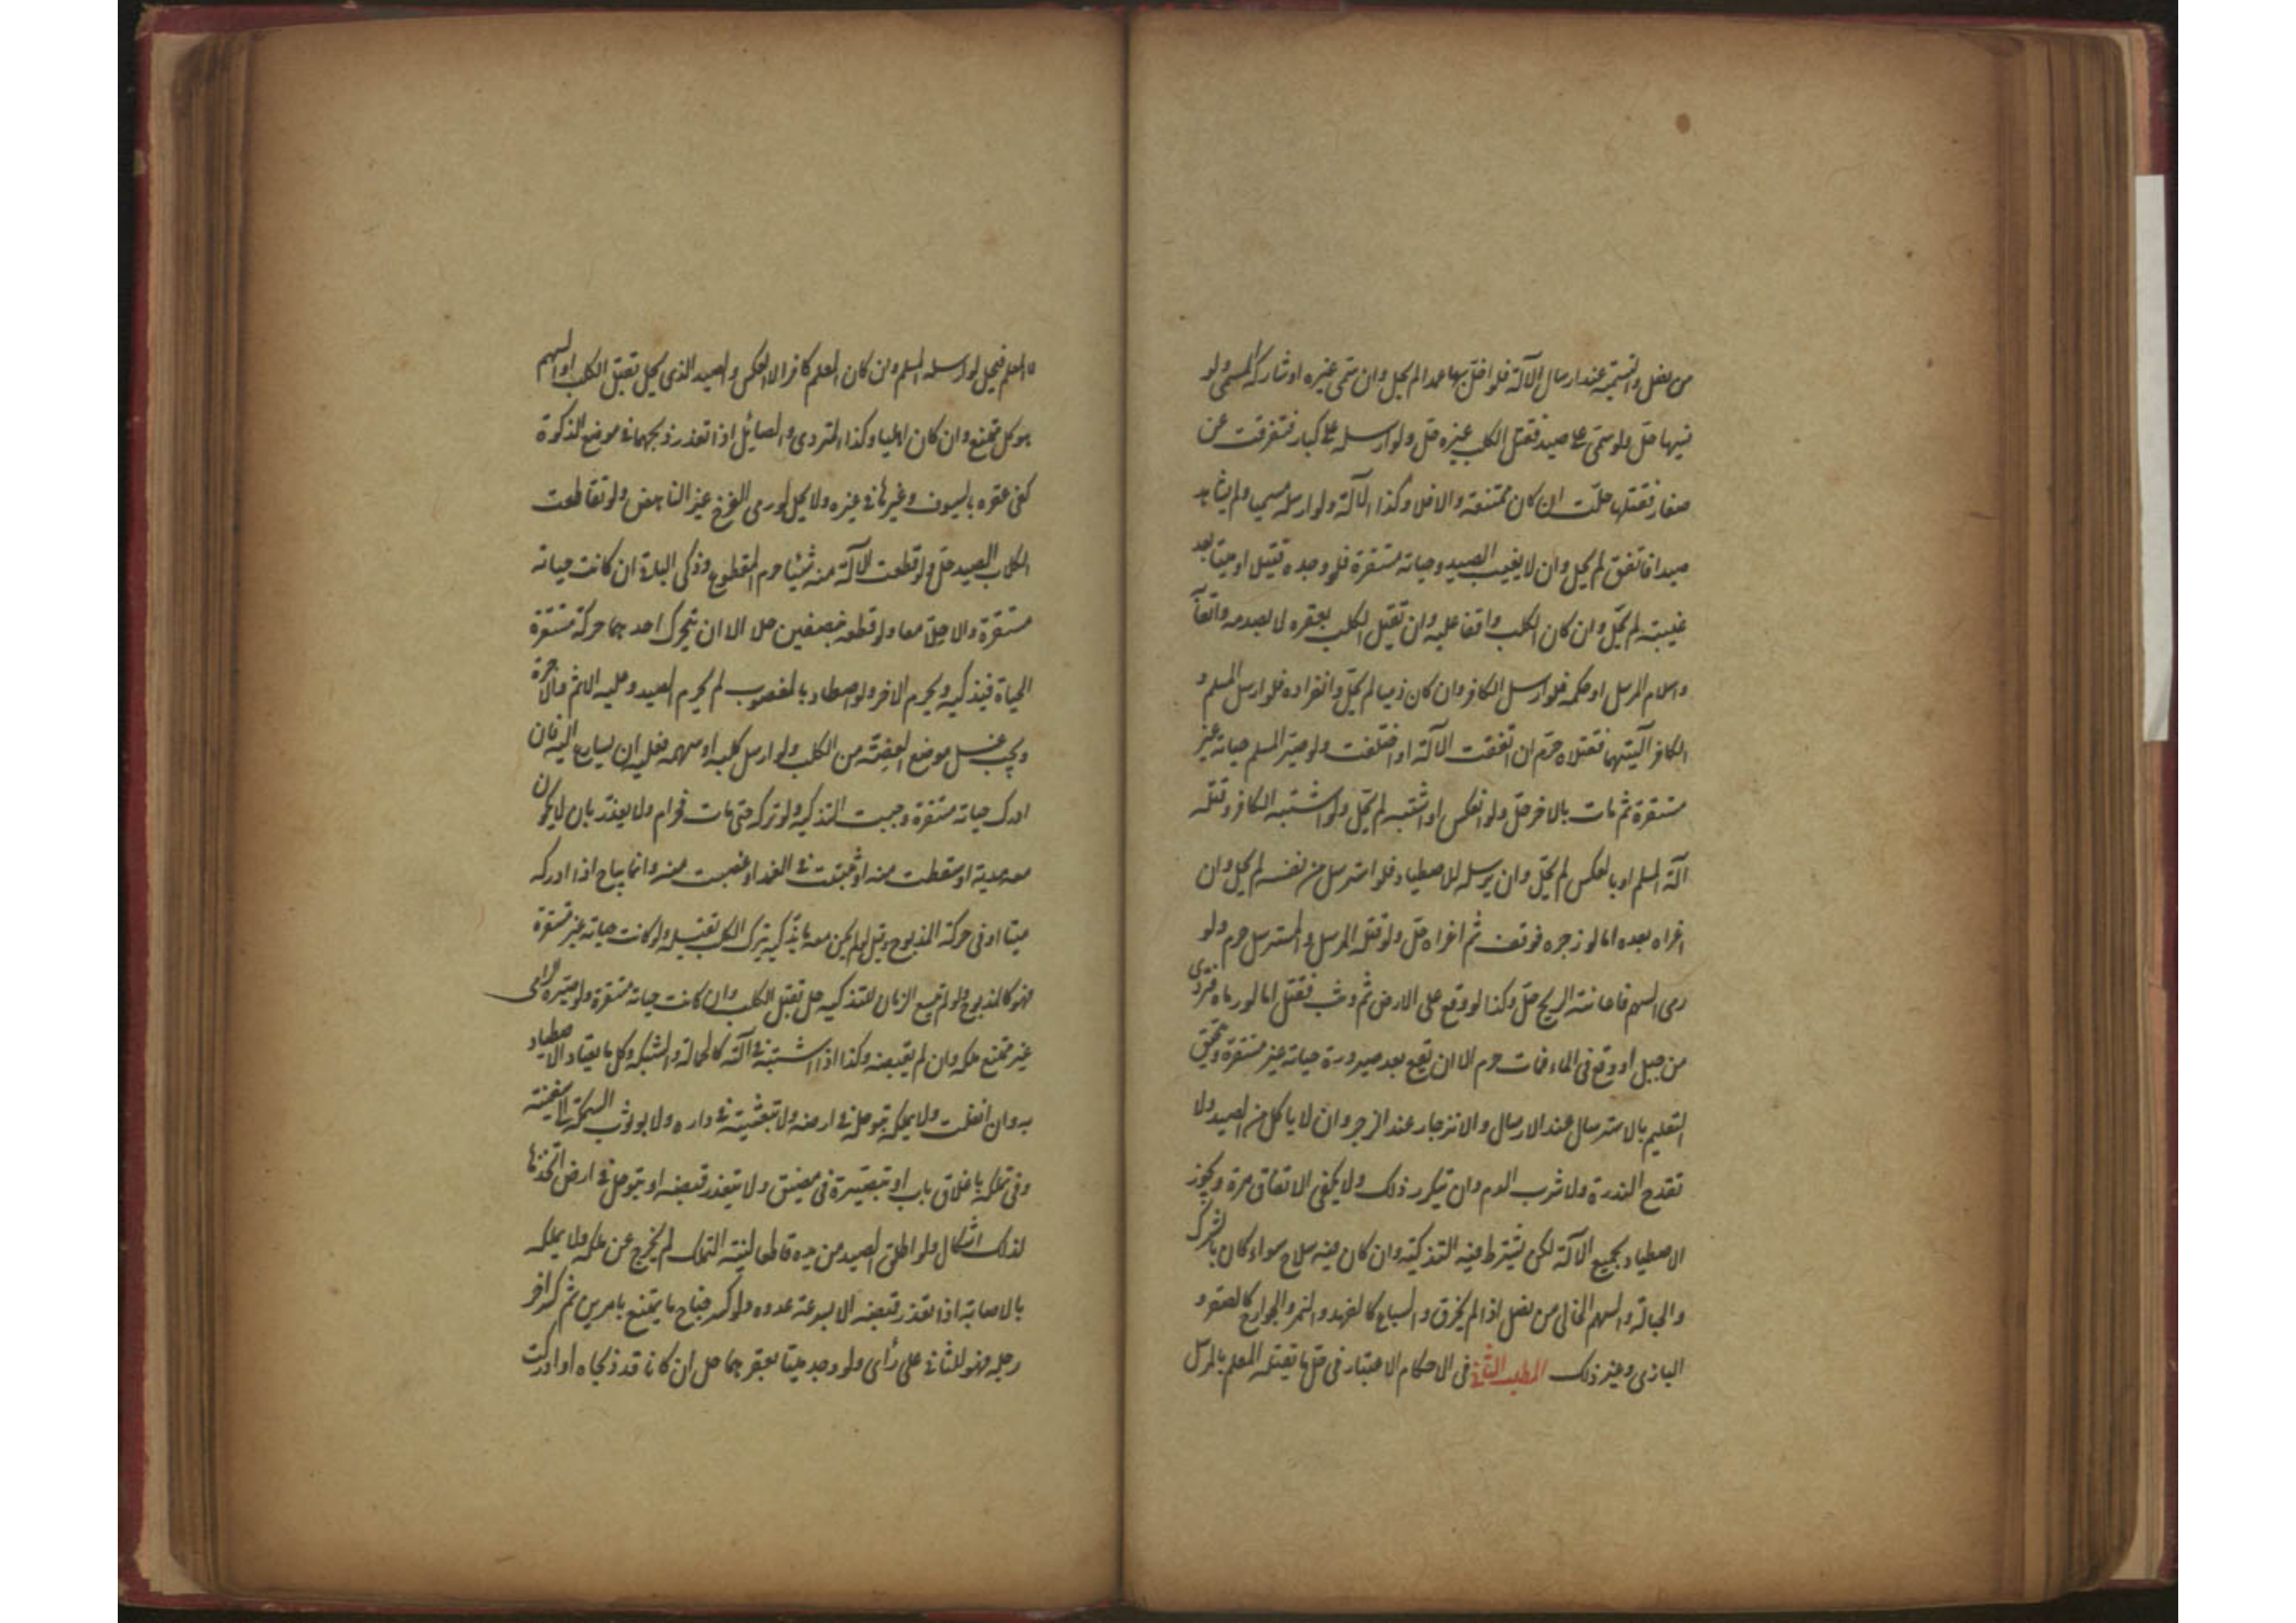 من نصل والتسمية عند ارسال الآلة فلو اخل بها عمدا لم يحل وان سمى غيره او شارك المسمى ولو
نسيها حل ولو سمى على صيد فقتل الكلب غيره حل ولو ارسله على كبار فتفرقت عن
صغار فقتلها حلت ان كان ممتنعة والا فلا وكذا الآلة ولو ارسله مسميا ولم يشاهد
صيدا فاتفق لم يحل وان لا يغيب الصيد وحياته مستقرة فلو وجده قتيل او ميتا بعد
غيبته لم يحل وان كان الكلب واقفا عليه وان تقتل الكلب بعقره لا بصدمه واتعاب
واسلام المرسل او حكمه فلو ارسل الكافر وان كان ذميا لم يحل وانفراده فلو ارسل المسلم و
الكافر آلتيهما فقتلاه حرم ان اتفقت الآلة او اختلفت ولو صير المسلم حياته غير
مستقرة ثم مات بالاخر حل ولو انعكس او اشتبه لم يحل ولو اشتبه الكافر وقتله
آلة المسلم او بالعكس لم يحل وان يرسله للاصطياد فلو استرسل من نفسه لم يحل وان
اغراه بعده اما لو زجره فوقف ثم اغراه حل ولو قتله المرسل والمسترسل حرم ولو
رمى السهم فاعانته الريح حل وكذا لو وقع على الارض ثم وثب فقتل اما لو رماه فتردى
من جبل او وقع فى الماء فمات حرم الا ان تقع بعد صيرورة حياته غير مستقرة وتحقق
التعليم بالاسترسال عند الارسال والانزجار عند الزجر وان لا ياكل من الصيد ولا
تقدح الندرة ولا شرب الدم وان تيكرر ذلك ولا يكفى الاتفاق مرة ويجوز
الاصطياد بجميع الآلة لكن يشترط فيه التذكية وان كان فيه سلاح سواء كان بالشرك
والحبالة والسهم الخالى من نصل اذا لم يخرق والسباع كالفهد والنمر والجوارح كالصقر و
البازى وغير ذلك المطلب الثانى فى الاحكام الاعتبار فى حل ما تقتله المعلم بالمرسل
لا المعلم فيحل لو ارسله المسلم وان كان المعلم كافرا لا العكس والصيد الذى يحل بقتل الكلب او السهم
هو كل ممتنع وان كان اهليا وكذا المتردى والصائل اذا تعذر ذبحهما فى موضع الذكوة
كفى عقره بالسيوف وغيرها فى غيره ولا يحل لو رمى الفرخ غير الناهض ولو تقاطعت
الكلاب الصيد حل ولو قطعت الآلة منه شيئا حرم المقطوع وذكى الباقى ان كانت حياته
مستقرة والا حلا معا ولو قطعه بنصفين حلا الا ان يتحرك احدهما حركة مستقرة
الحياة فيذكيه ويحرم الاخر ولو اصطاد بالمغصوب لم يحرم الصيد وعليه الاثم والاجرة
ويجب غسل موضع العضة من الكلب ولو ارسل كلبه او سهمه فعليه ان يسارع اليه فان
ادرك حياته مستقرة وجبت التذكية ولو تركه حتى مات فحرام ولا يعذر بان لا يكون
معه مدية او سقطت منه او تثبتت فى الغمد او غصبت منه وانما يباح اذا ادركه
ميتا او فى حركة المذبوح وقيل لو لم يكن معه ما يذكيه يترك الكلب تقتيله ولو كانت حياته غير مستقرة
فهو كالمذبوح ولو لم تيسع الزمان للتذكية حل بقتل الكلب وان كانت حياته مستقرة ولو صيره الرامى
غير ممتنع ملكه وان لم يقبضه وكذا اذا اشتبته فى آلته كالحبالة والشبكة وكل ما يعتاد الاصطياد
به وان انفلت ولا يملكه بتوحله فى ارضه ولا بتعشيشه فى داره ولا بوثوب السمكة الى السفينة
وفى تملكه باغلاق باب او تبصييره فى مضيق ولا تيعذر قبضه او بتوحل فى ارض اتخذها
لذلك اشكال ولو اطلق الصيد من يده قاطعا لنيته التملك لم يخرج عن ملكه ولا يملكه
بالاصابة اذا تعذر قبضه الا بسرعة عدوه ولو كسر جناح ما يمتنع بامرين ثم كسر اخر
رجله فهو للثانى على رأى ولو وجد ميتا بعقرهما حل ان كانا قد ذكياه او ادركت